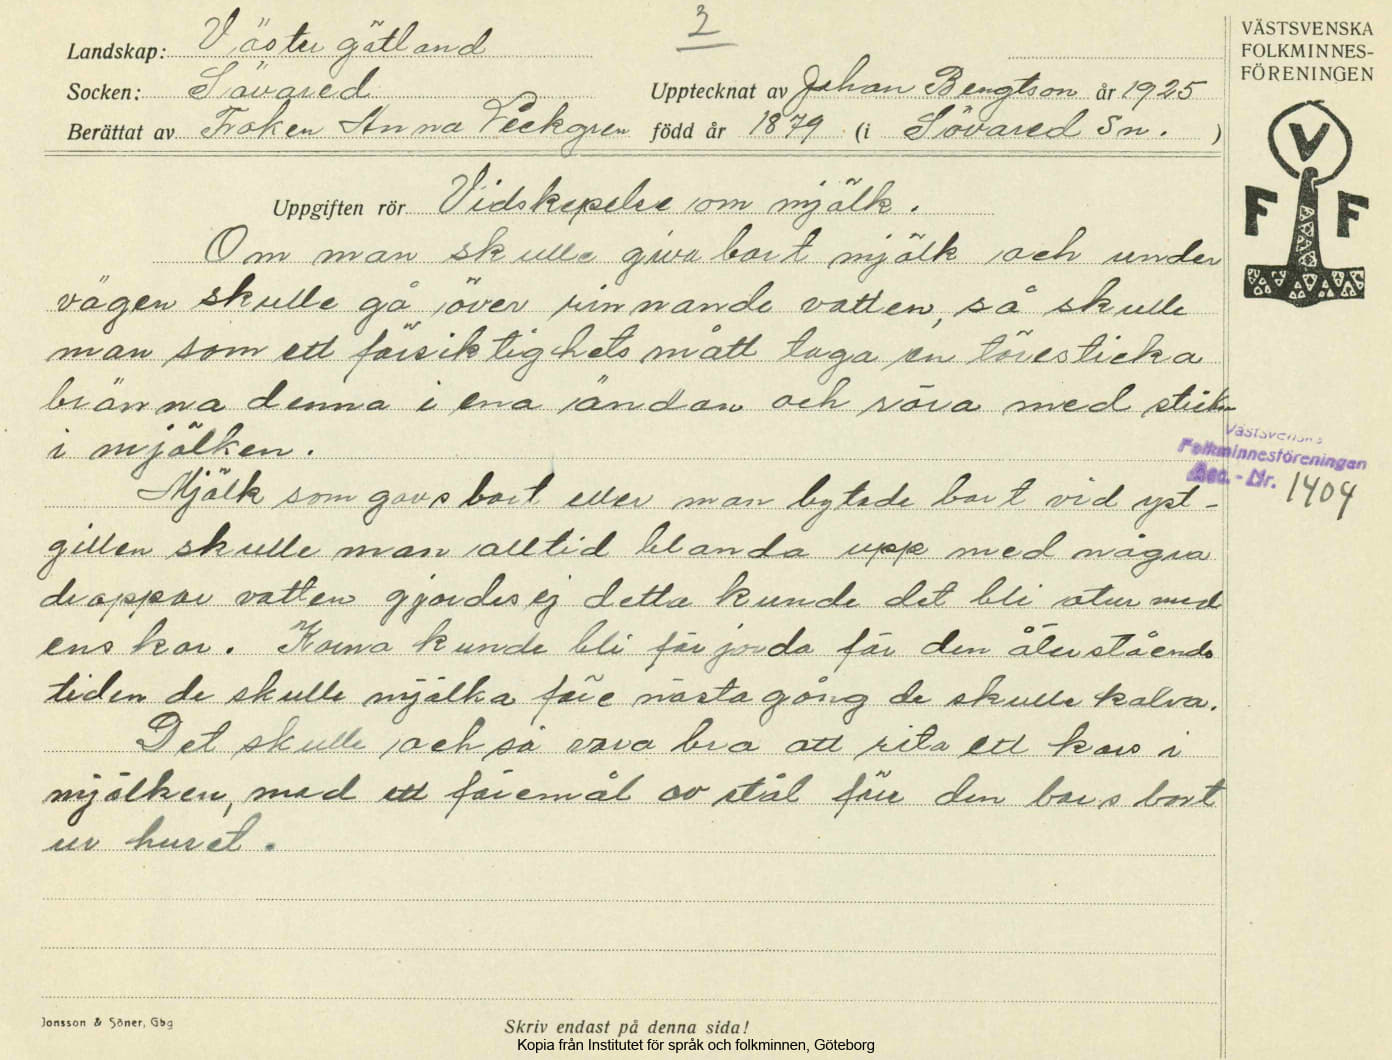 2
VÄSTSVENSKA
FOLKMINNES-
FÖRENINGEN
V
F F
Landskap: Västergötland
Socken: Sövared
Upptecknat av Johan Bengtson år 1925
Berättat av Fröken Anna Veckgren född år 1879 (i Sövared Sn. )
Uppgiften rör Vidskepelse om mjölk.
Om man skulle giva bort mjölk och under
vägen skulle gå över rinnande vatten, så skulle
man som ett försiktighetsmått taga en töresticka
bränna denna i ena ändan och röra med stickan
i mjölken.
Mjölk som gavs bort eller man bytade bort vid yst-
gillen skulle man alltid blanda upp med några
droppar vatten gjordes ej detta kunde det bli otur med
ens kor. Korna kunde bli förjorda för den återstående
tiden de skulle mjölka före nästa gång de skulle kalva.
Det skulle och så vara bra att rita ett kors i
mjölken, med ett föremål av stål före den bars bort
ur huset.
Västsvenska
Folkminnesföreningen
Acc. - Nr. 1404
Jonsson & Söner, Gbg
Skriv endast på denna sida!
Kopia från Institutet för språk och folkminnen, Göteborg